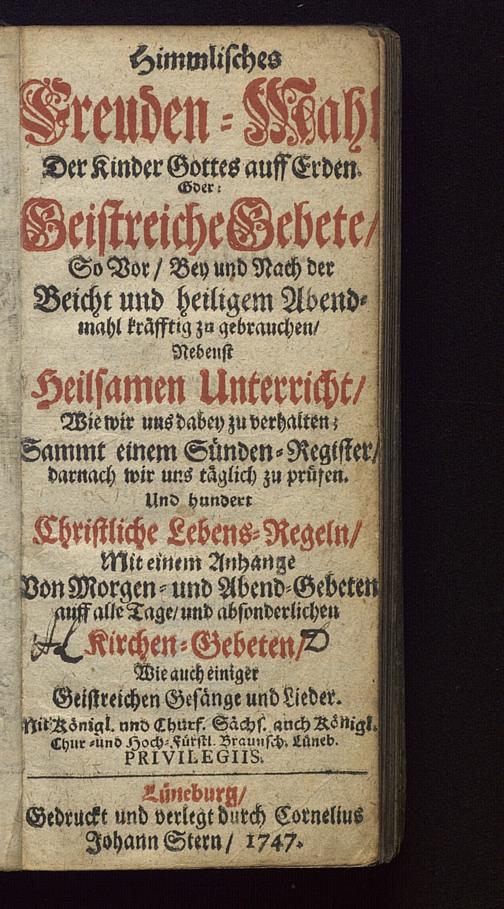 Himmlisches
Freuden-Mahl
Der Kinder Gottes auff Erden.
Oder:
Geistreiche Gebete/
So Vor/ Bey und Nach der
Beicht und heiligem Abend-
mahl kräfftig zu gebrauchen/
Nebenst
Heilsamen Unterricht/
Wie wir uns dabey zu verhalten;
Sammt einem Sünden-Register/
darnach wir uns täglich zu prüfen.
Und hundert
Christliche Lebens-Regeln/
Mit einem Anhange
Von Morgen- und Abend-Gebeten
auff alle Tage/ und absonderlichen
Kirchen-Gebeten/
Wie auch einiger
Geistreichen Gesänge und Lieder.
Mit Königl. und Churf. Sächs. auch Königl.
Chur- und Hoch-Fürstl. Braunsch. Lüneb.
PRIVILEGIIS.
Lüneburg/
Gedruckt und verlegt durch Cornelius
Johann Stern/ 1747.